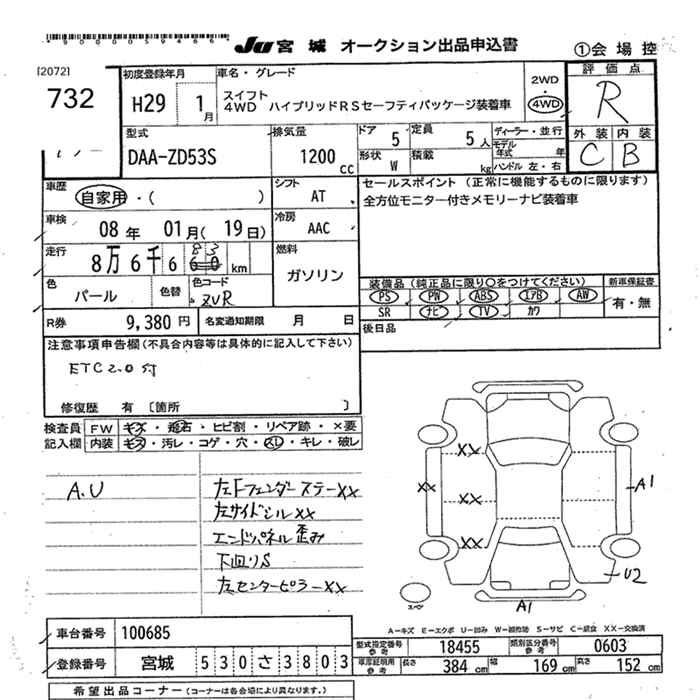 *9000059466*
JU 宮城 オークション出品申込書
①会場控
[2072]
732
初度登録年月
H29 1月
車名・グレード
スイフト
4WD ハイブリッドRSセーフティパッケージ装着車
2WD
・
4WD
評価点
R
外装 内装
C B
型式
DAA-ZD53S
排気量
1200 cc
ドア 5
定員 5人
形状 W
積載 kg
ディーラー・並行
モデル年式 年
ハンドル 左・右
車歴
自家用・( )
シフト
AT
セールスポイント (正常に機能するものに限ります)
全方位モニター付きメモリーナビ装着車
車検
08年 01月(19日)
冷房
AAC
走行
8万6千6 60 km
83
燃料
ガソリン
色
パール
色替
色コード
ZVR
装備品 (純正品に限り○をつけてください)
PS PW ABS エアB AW
SR ナビ TV カワ
新車保証書
有・無
R券 9,380円
名変通知期限 月 日
後日品
注意事項申告欄(不具合内容等は具体的に記入して下さい)
ETC2.0付
修復歴 有 〔箇所 〕
検査員記入欄
FW キズ・飛石・ヒビ割・リペア跡・×要
内装 キズ・汚レ・コゲ・穴・スレ・キレ・破レ
A.U
左Fフェンダーステー××
左サイドシル××
エンドパネル歪み
下回りS
左センターピラー××
××
××
××
××
A1
U2
A1
スペア
A-キズ E-エクボ U-凹み W-補修跡 S-サビ C-腐食 XX-交換済
車台番号 100685
登録番号 宮城 530さ3803
型式指定番号 参考 18455
類別区分番号 参考 0603
車庫証明用 参考 長さ 384cm 幅 169cm 高さ 152cm
希望出品コーナー (コーナーは各会場により異なります。)